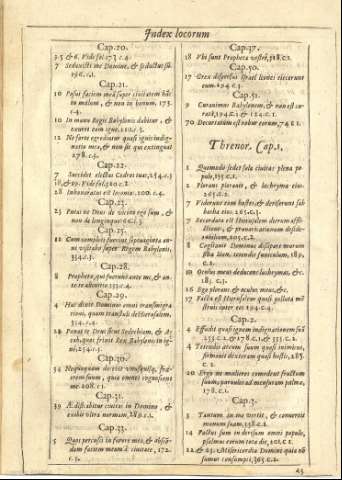 Index locorum
Cap. 20.
3. 5 & 6. Vide fol. 175. c. 4.
7 Seduxisti me Domine, & seductus sũ
196. c. 1.
Cap. 21.
10 Posui faciem meã super civitatem hãc
in malum, & non in bonum. 175.
c. 4.
10 In manu Regis Babylonis dabitur, &
exuret eam igne. 110. c. 3.
12 Ne forte egrediatur quasi ignis indig-
natio mea, & non sit qui extinguat
278. c. 3.
Cap. 22.
7 Succident electas Cedros tuas, 254. c. 3
18, & 19. Vide fol. 280. c. 2.
28 Iechonias. 100. c. 4.
Cap. 23.
23 Putas ne Deus de vicino ego sum, &
non de longinquo? 6. c. 3.
Cap. 25.
12 Cum completi fuerint septuaginta an-
ni, visitabo super Regem Babylonis,
334. c. 3.
Cap. 28.
8 Prophetæ, qui fuerunt ante me, & an-
te te ab initio. 333. c. 4.
Cap. 29.
4 Hæc dicit Dominus omni transmigra
tioni, quam transtuli de Hierusalem,
334. c. 4.
22 Ponat te Deus sicut Sedechiam, & A-
cab, quos frixit Rex Babylonis in ig-
ni, 254. c. 1.
Cap. 30.
34 vir proximum, fra-
trem suum, quia omnes cognoscent
me. 208. c. 1.
Cap. 31.
39 Ædificabitur civitas in Domino, &
exibit ultra normam, 289. c. 1.
Cap. 33.
5 Quos percussi in furore meo, & abscõ-
dam faciem meam à civitate, 172.
c. 3.
Cap. 37.
18 Ubi sunt Prophetæ vestri, 328. c. 1.
Cap. 50.
17 Grex dispersus Israel leones eiecerunt
eum. 294. c. 3.
Cap. 51.
9 Curavimus Babylonem, & non est cu-
rata, 194. c. 3. & 124. c. 1.
20 est robur eorum, 74. c. 1.
Threnor. Cap. 1.
1 Quomodo sedet sola civitas plena po-
pulo, 155. c. 2.
2 Plorans ploravit, & lachrymæ eius
265. c. 2.
7 Viderunt eam hostes, & deriserunt sab
batha eius. 265. c. 3.
7 Recordata est Hierusalem dierum affli-
ctionis, & omnium
205. c. 2.
8 Cogitavit Dominus dissipare murum
filiæ Sion. tetendit funiculum, 189.
c. 1.
10 Oculus meus deducens lachrymas, &c.
183. c. 3.
16 Ego plorans & oculus meus, &c.
17 Facta est Hierusalem quasi polluta mẽ
struis inter eos 194. c. 4.
Cap. 2.
4 Effudit quasi ignem indignationem suã
253. c. 2. & 278. c. 1. & 333. c. 2.
4 Tetendit arcum suum quasi inimicus,
firmavit dexteram quasi hostis, 285.
c. 2.
20 Ergo ne mulieres comedent fructum
suum, parvulos ad mensuram palmæ,
178. c. 1.
Cap. 3.
3 Tantum in me vertit, & convertit
manum suam, 158. c. 2.
14 Factus sum in derisum omni populo,
psalmus eorum tota die, 202. c. 1.
22 & 23. Misericordiæ Domini quia nõ
sumus consumpti, 365. c. 2.
25